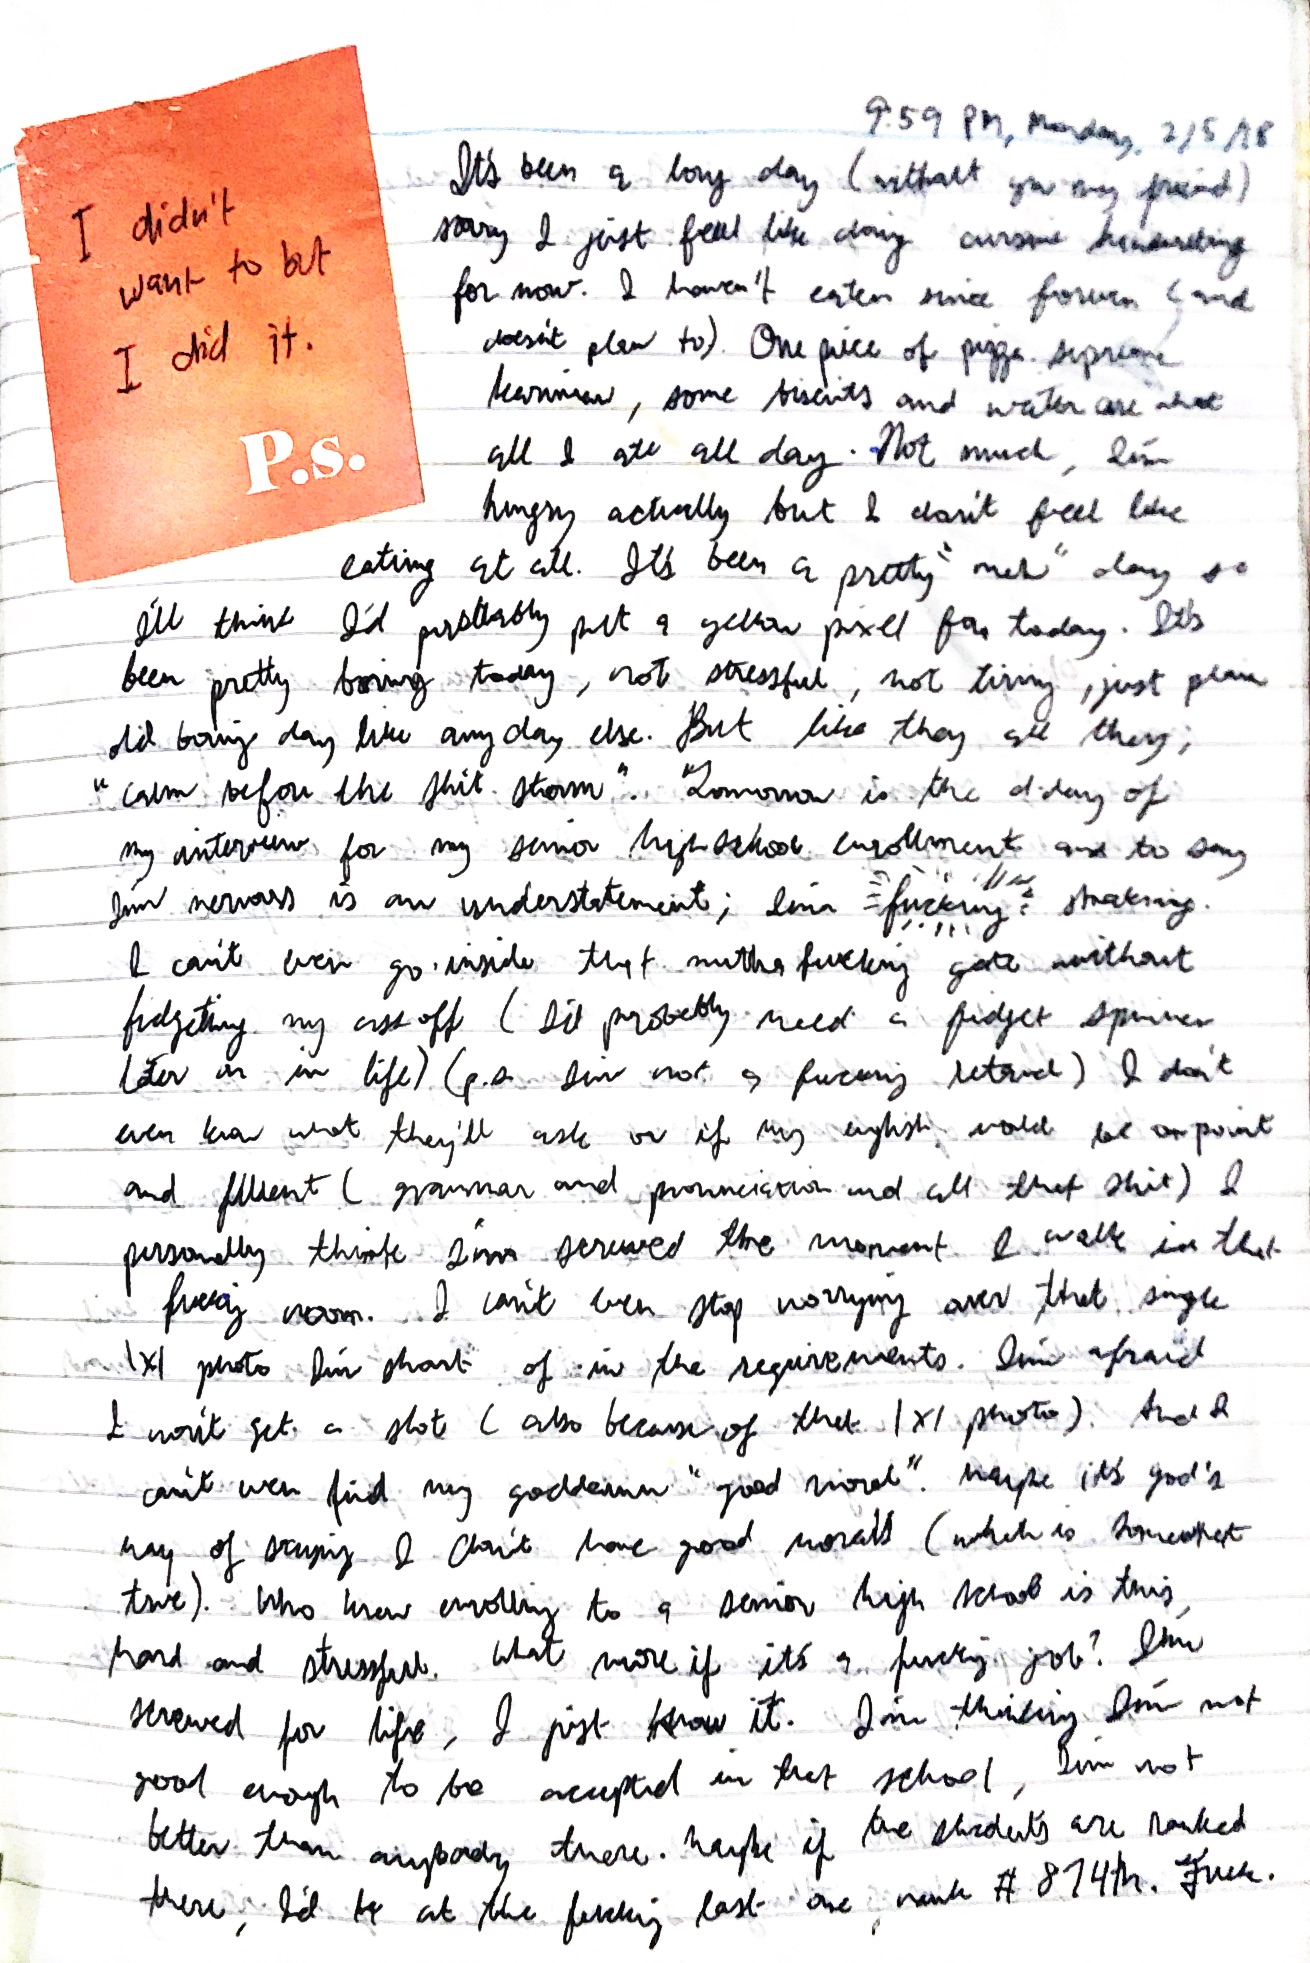 I didn't
want to but
I did it.
P.s.
9:59 PM, Monday, 2/5/18
It's been a long day (without you my friend)
sorry I just feel like doing cursive handwriting
for now. I haven't eaten since forever (and
doesn't plan to). One piece of pizza supreme
, some biscuits and water are what
all I ate all day. Not much, I'm
hungry actually but I don't feel like
eating at all. It's been a pretty "meh" day so
I'll think I'd probably put a yellow pixel for today. It's
been pretty boring today, not stressful, not tiring, just plain
old boring day like any day else. But like they all they;
"calm before the shit storm". Tomorrow is the d-day of
my interview for my senior high school enrollment and to say
I'm nervous is an understatement; I'm fucking shaking.
I can't even go inside that mutha fucking gate without
fidgeting my ass off (I'd probably need a fidget spinner
later on in life) (p.s. I'm not a fucking retard) I don't
even know what they'll ask or if my english would be on point
and flluent (grammar and pronunciation and all that shit) I
personally think I'm screwed the moment I walk in that
fucking room. I can't even stop worrying over that single
1x1 photo I'm short of in the requirements. I'm afraid
I won't get a slot (also because of that 1x1 photo). And I
can't even find my goddamn "good moral". Maybe it's god's
way of saying I don't have good morals (which is somewhat
true). Who knew enrolling to a senior high school is this
hard and stressful. What more if it's a fucking job? I'm
screwed for life, I just know it. I'm thinking I'm not
good enough to be accepted in that school, I'm not
better than anybody there. Maybe if the students are ranked
there, I'd be at the fucking last one, rank # 874th. Fuck.